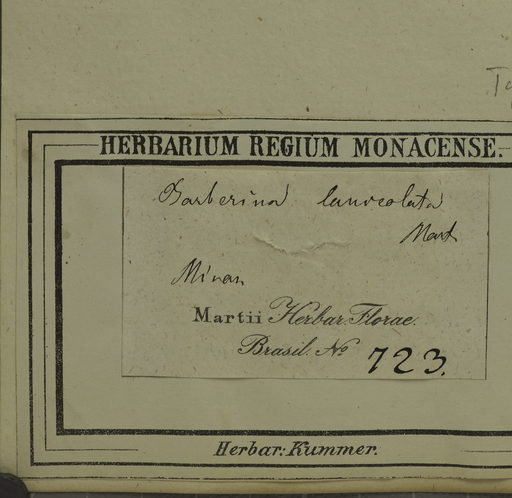 HERBARIUM REGIUM MONACENSE.
Barberina lanceolata
Mart
Minas
Martii Herbar. Florae.
Brasil. No 723.
Herbar: Kummer.